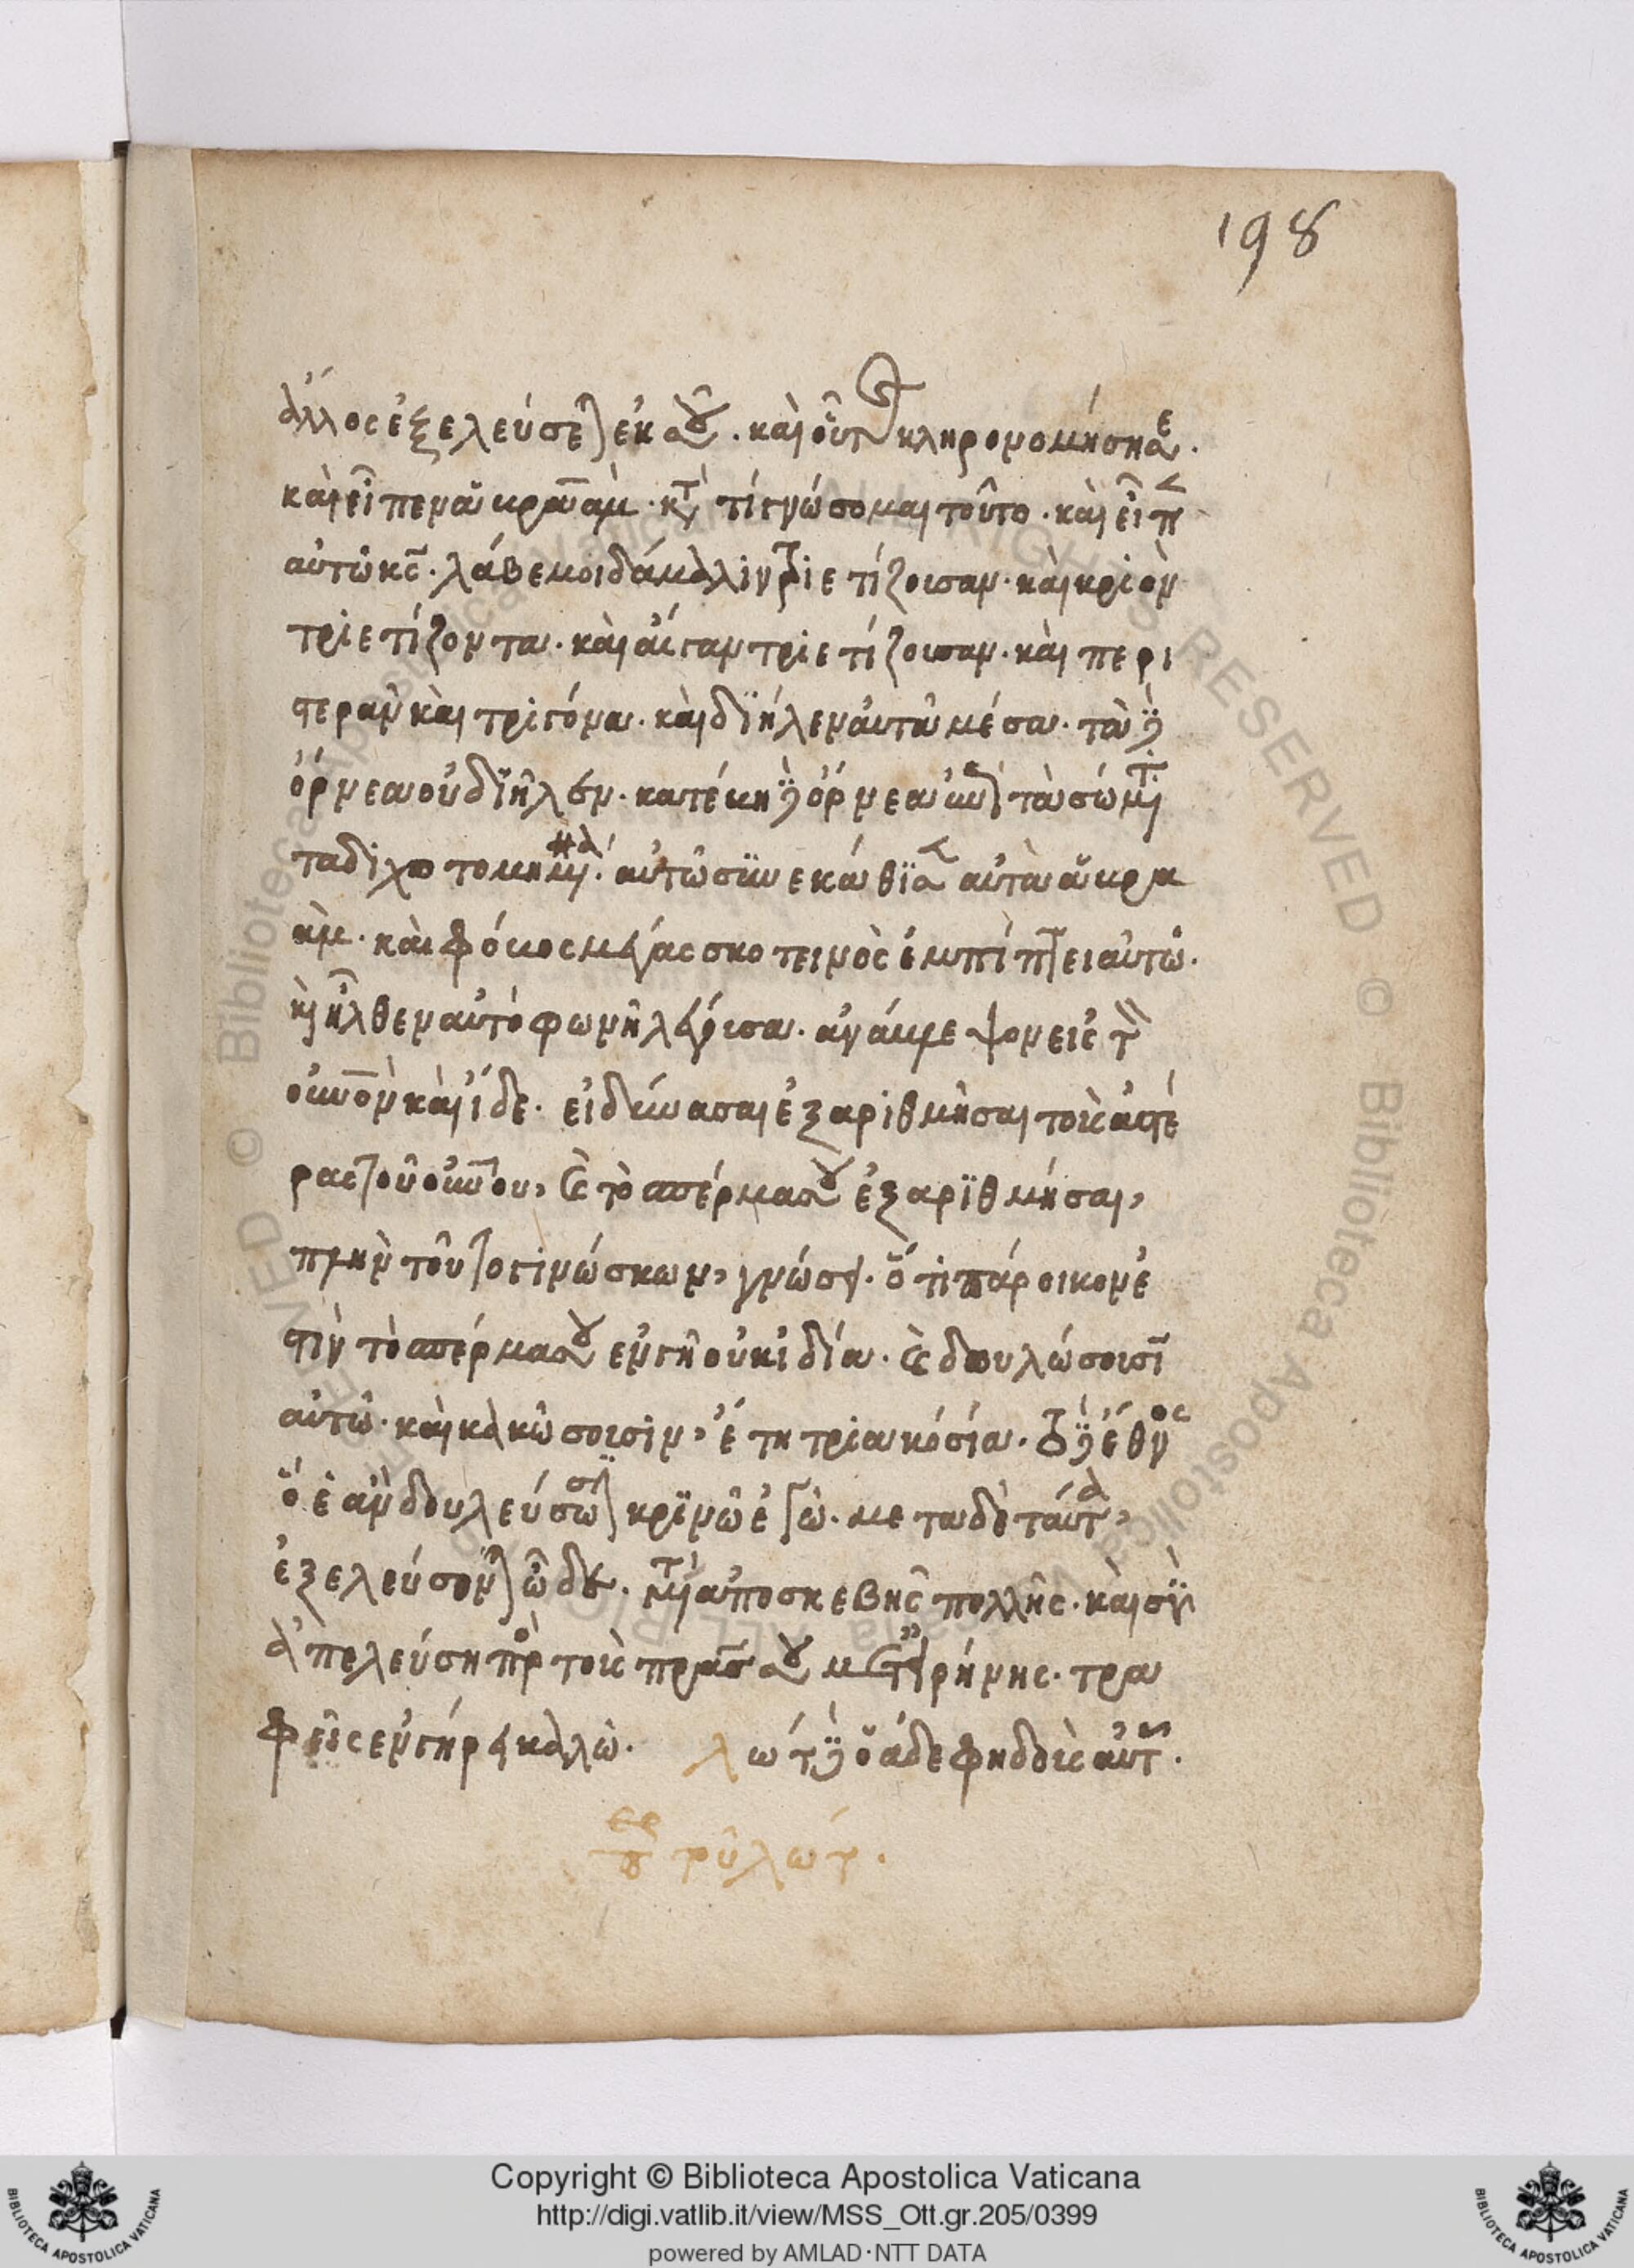 198
ἄλλος ἐξελεύσεται ἐκ σοῦ. καὶ οὗτος κληρονομήσῃ σε.
καὶ εἶπεν ἀβρααμ. κατὰ τί γνώσομαι τοῦτο. καὶ εἶπεν
αὐτῶ κς. λάβε μοι δάμαλιν τριετίζουσαν. καὶ κριὸν
τριετίζοντα. καὶ αἶγαν τριετίζουσαν. καὶ περι
στεραν καὶ τριγόνα. καὶ διήλεν αὐτὰ μέσα. τὰ δὲ
ὄρνεα οὐ διῆλεν. κατέβη δὲ ὄρνεα ἐπὶ τὰ σώματα
τὰ διχοτομήματα αὐτῶ συνεκάθισεν αὐτὰ ἀβρα
ὰμ. καὶ φόβος μέγας σκοτεινὸς ἐμπίπτει αὐτῶ.
καὶ ἦλθεν αὐτὸ φωνὴ λέγουσα. ἀνάβλεψον εἰς τὸν
οὐνον καὶ ἴδε. εἰ δύνασαι ἐξαριθμῆσαι τοὺς ἀστέ
ρας τοῦ οὐνου, καὶ τὸ σπέρμα σου ἐξαριθμήσαι,
πλὴν τοῦτο γινώσκων, γνώσει. ὅτι πάροικον ἐ
στὶν τὸ σπέρμα σου ἐν γῆ οὐκ ἰδία. καὶ δουλώσουσι
αὐτῶ. καὶ κακώσουσιν, ἔτη τριακόσια. τὸ δὲ ἔθνος
ὃ ἐὰν δουλεύσωσι κρινῶ ἐγώ. μετα δὲ ταῦτα,
ἐξελεύσονται ὧδε. μετὰ ἀποσκεβῆς πολλῆς. καὶ σὺ
ἀπελεύση πρὸς τοὺς πρας σου μετ' εἰρήνης. τρα
φεὶς ἐν γήρει καλῶ. λώτ δὲ ὁ ἀδεφηδοὺς αὐτοῦ.
περ τοῦ λώτ.
Copyright © Biblioteca Apostolica Vaticana
http://digi.vatlib.it/view/MSS_Ott.gr.205/0399
powered by AMLAD·NTT DATA